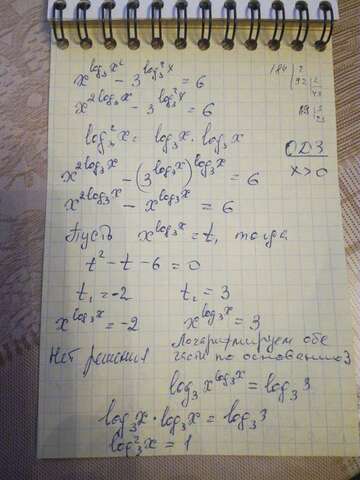 x^{log_3 x^2} - 3^{log_3^2 x} = 6
x^{2log_3 x} - 3^{log_3^2 x} = 6
log_3^2 x = log_3 x · log_3 x
x^{2log_3 x} - (3^{log_3 x})^{log_3 x} = 6
ОДЗ
x > 0
x^{2log_3 x} - x^{log_3 x} = 6
Пусть x^{log_3 x} = t, тогда
t^2 - t - 6 = 0
t_1 = -2 t_2 = 3
x^{log_3 x} = -2 x^{log_3 x} = 3
Нет решения
Логарифмируем обе
части по основанию 3
log_3 x^{log_3 x} = log_3 3
log_3 x · log_3 x = log_3 3
log_3^2 x = 1